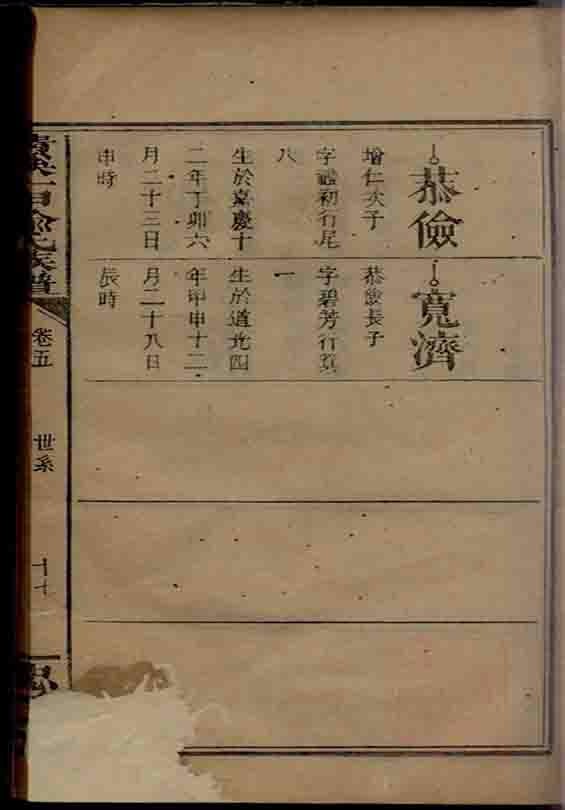 恭儉
增仁次子
字禮初行尾
八
生於嘉慶十
二年丁卯六
月二十三日
申時
寬濟
恭儉長子
字碧芳行
一
生於道光四
年甲申十二
月二十八日
辰時
氏族譜
卷五
世系